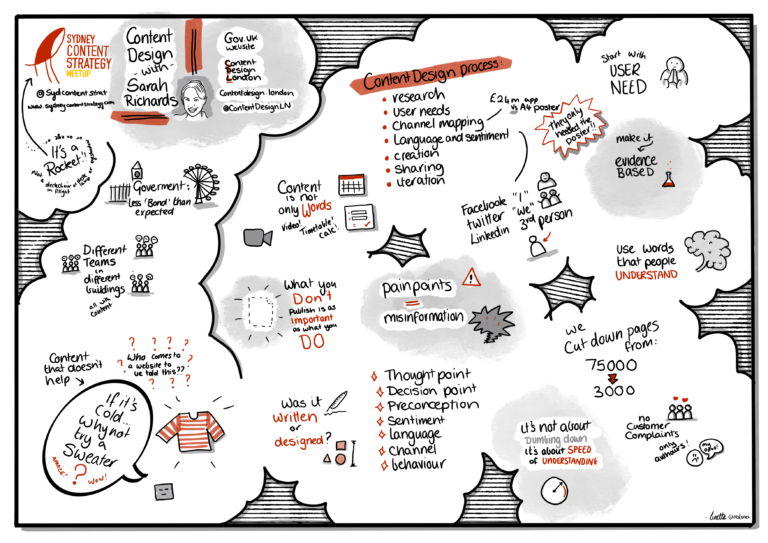 SYDNEY
CONTENT
STRATEGY
MEETUP
@Sydcontentstrat
www.sydneycontentstrategy.com
It's a
Rocket!!
Content
Design
with
Sarah
Richards
Gov.uk
website
Content
Design
London
Contentdesign.london
@ContentDesignLN
Goverment:
Less 'Bond' than
expected
Different
Teams
in
different
buildings
all with
content
Content
that doesn't
help
? ? ? ?
Who comes to
a website to
be told this??
? ? ? ?
If it's
Cold...
Why not
try a
Sweater
?
WOW!
Content Design process:
research
User needs
Channel mapping
Language and sentiment
creation
sharing
iteration
£24m app
vs A4 poster
They only
needed the
poster!!
Facebook "I"
twitter "We"
Linkedin 3rd person
Content
is not
only Words
Video! Timetable! Calc!
What you
Don't
Publish is as
important
as what you
DO
pain points
=
misinformation
!
Was it
written
or
designed?
Thought point
Decision point
Preconception
Sentiment
language
channel
behaviour
Start with
USER
NEED
make it
evidence
BASED
USE WORDS
that people
UNDERSTAND
we
Cut down pages
from:
75000
3000
no
Customer
Complaints
only
authors!
It's not about
Dumbing down
it's about SPEED
of UNDERSTANDING